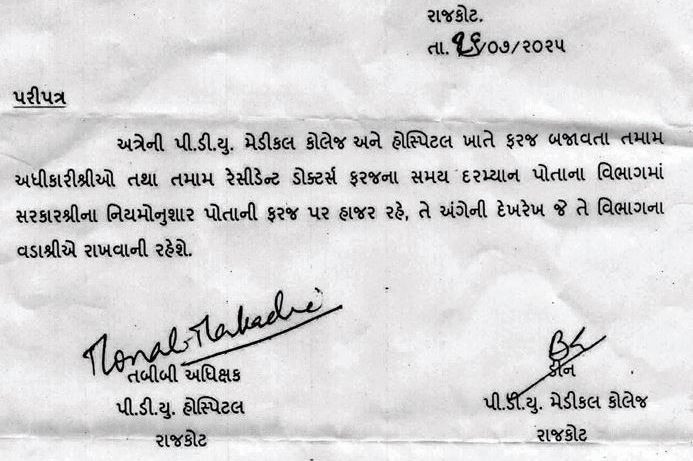 રાજકોટ.
તા. ૨૬/૦૭/૨૦૨૫
પરીપત્ર
અત્રેની પી.ડી.યુ. મેડીકલ કોલેજ અને હોસ્પિટલ ખાતે ફરજ બજાવતા તમામ
અધીકારીશ્રીઓ તથા તમામ રેસીડેન્ટ ડોક્ટર્સ ફરજના સમય દરમ્યાન પોતાના વિભાગમાં
સરકારશ્રીના નિયમોનુશાર પોતાની ફરજ પર હાજર રહે, તે અંગેની દેખરેખ જે તે વિભાગના
વડાશ્રીએ રાખવાની રહેશે.
તબીબી અધિક્ષક
પી.ડી.યુ. હોસ્પિટલ
રાજકોટ
ડીન
પી.ડી.યુ. મેડીકલ કોલેજ
રાજકોટ